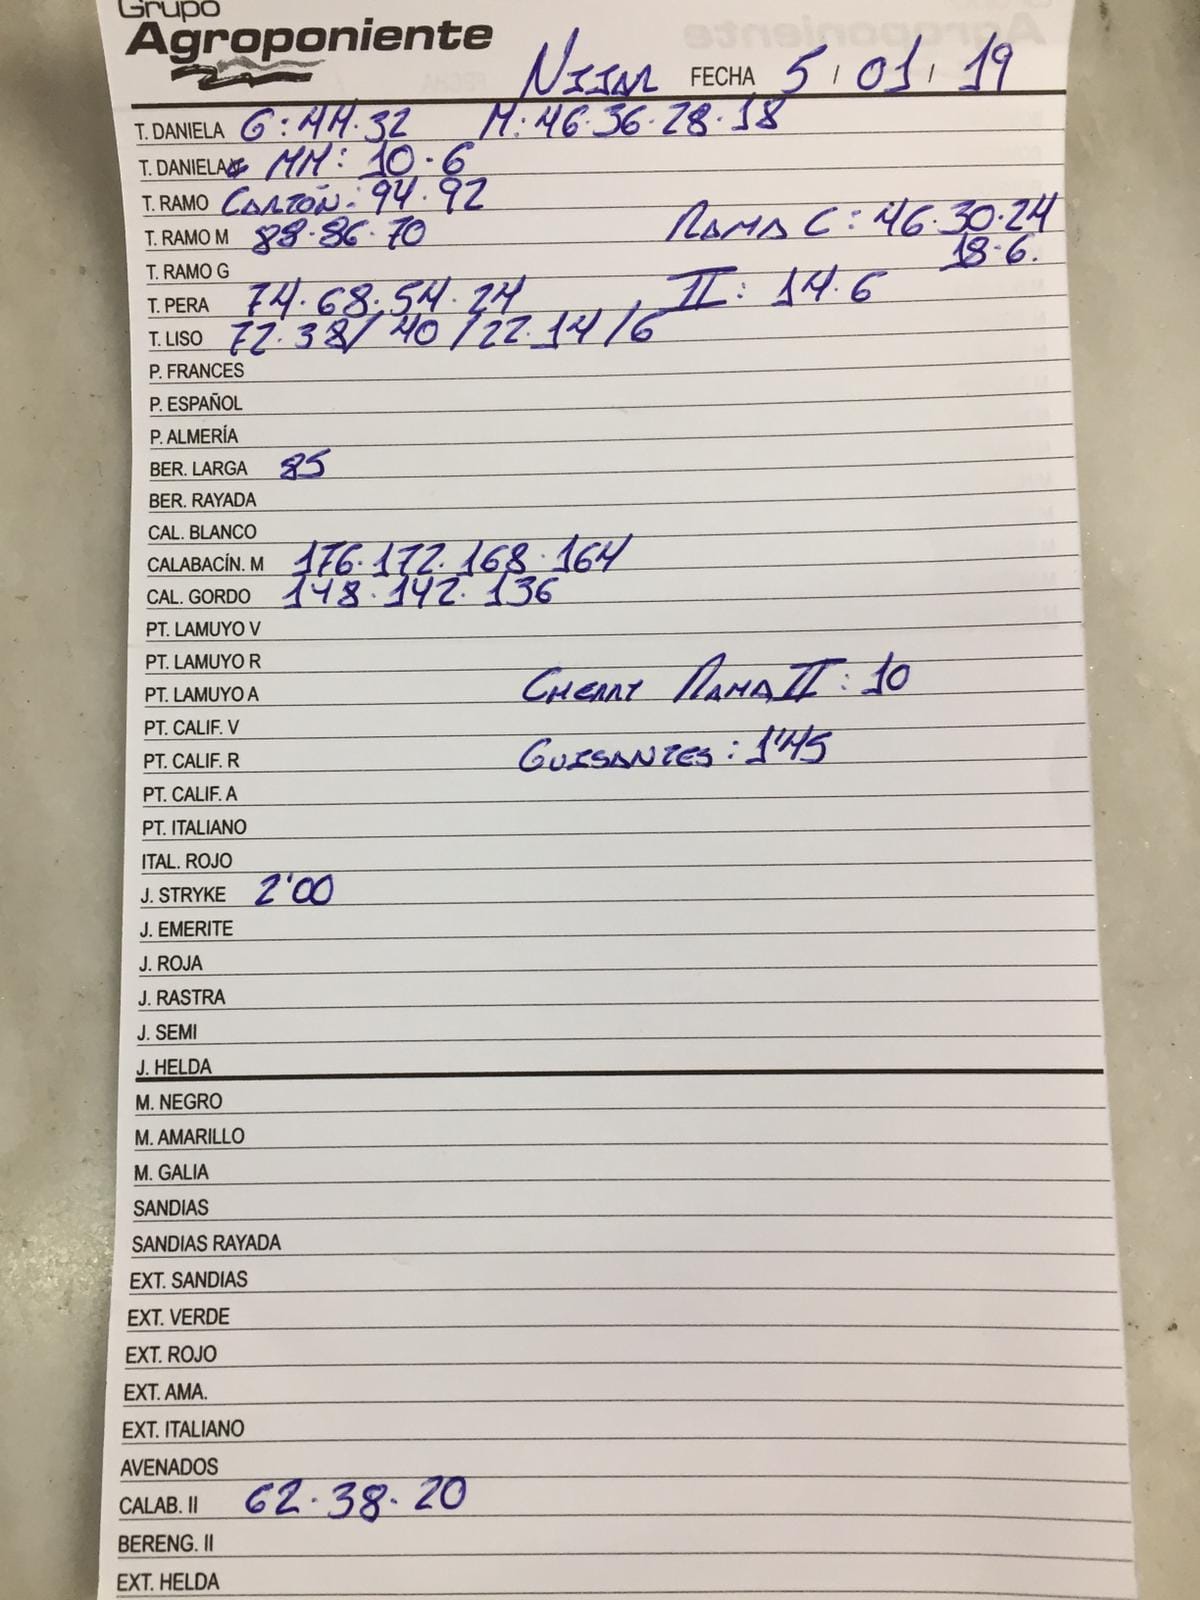 Grupo
Agroponiente
NIJAR FECHA 5 / 01 / 19
T. DANIELA G: 44.32 M: 46.36.28.18
T. DANIELA MM: 10.6
T. RAMO CARTÓN: 94.92
T. RAMO M 88.86.70 RAMA C: 46.30.24
T. RAMO G 18.6.
T. PERA 74.68.54.24 II: 14.6
T. LISO 72.38/40/22.14/6
P. FRANCES
P. ESPAÑOL
P. ALMERÍA
BER. LARGA 85
BER. RAYADA
CAL. BLANCO
CALABACÍN. M 176.172.168.164
CAL. GORDO 148.142.136
PT. LAMUYO V
PT. LAMUYO R
PT. LAMUYO A CHERRY RAMA II: 10
PT. CALIF. V
PT. CALIF. R GUISANTES: 1'45
PT. CALIF. A
PT. ITALIANO
ITAL. ROJO
J. STRYKE 2'00
J. EMERITE
J. ROJA
J. RASTRA
J. SEMI
J. HELDA
M. NEGRO
M. AMARILLO
M. GALIA
SANDIAS
SANDIAS RAYADA
EXT. SANDIAS
EXT. VERDE
EXT. ROJO
EXT. AMA.
EXT. ITALIANO
AVENADOS
CALAB. II 62.38.20
BERENG. II
EXT. HELDA